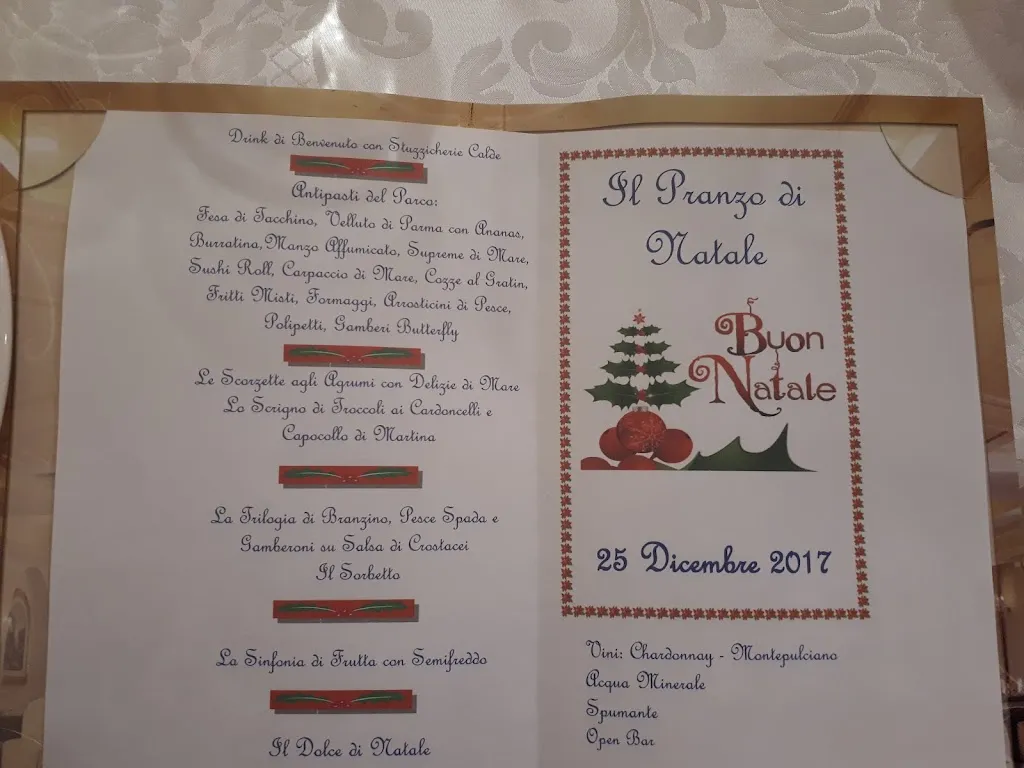 Drink di Benvenuto con Stuzzicherie Calde
Antipasti del Parco:
Fesa di Tacchino, Velluto di Parma con Ananas,
Burratina, Manzo Affumicato, Supreme di Mare,
Sushi Roll, Carpaccio di Mare, Cozze al Gratin,
Fritti Misti, Formaggi, Arrosticini di Pesce,
Polipetti, Gamberi Butterfly
Le Scorzette agli Agrumi con Delizie di Mare
Lo Scrigno di Troccoli ai Cardoncelli e
Capocollo di Martina
La Trilogia di Branzino, Pesce Spada e
Gamberoni su Salsa di Crostacei
Il Sorbetto
La Sinfonia di Frutta con Semifreddo
Il Dolce di Natale
Il Pranzo di
Natale
Buon
Natale
25 Dicembre 2017
Vini: Chardonnay - Montepulciano
Acqua Minerale
Spumante
Open Bar